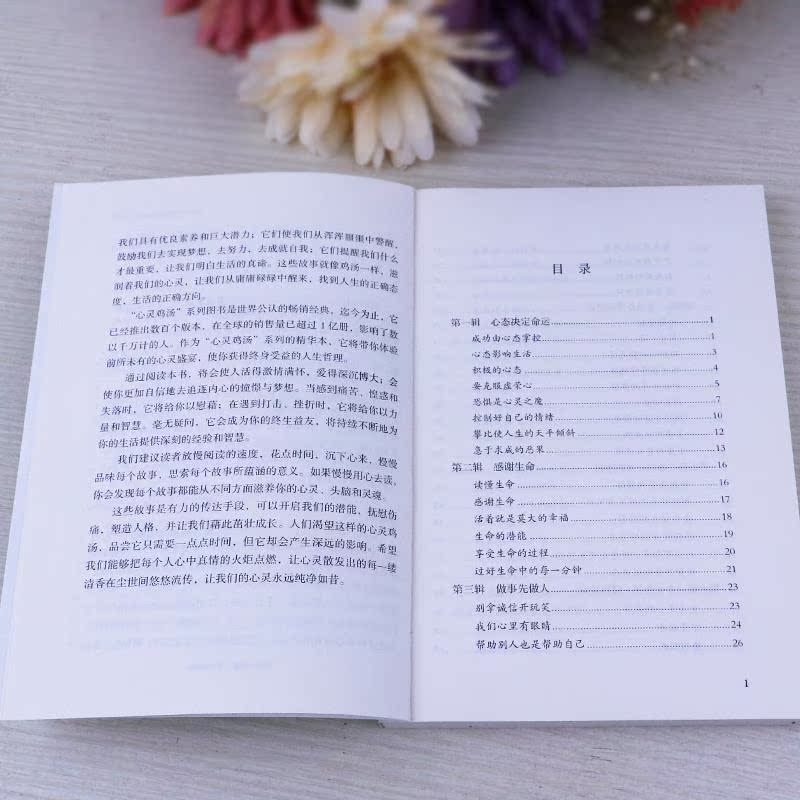 我们具有优良素养和巨大潜力；它们使我们从浑浑噩噩中警醒，
鼓励我们去实现梦想、去努力、去成就自我；它们提醒我们什么
才最重要，让我们明白生活的真谛。这些故事就像鸡汤一样，滋
润着我们的心灵，让我们从庸庸碌碌中醒来，找到人生的正确态
度、生活的正确方向。
“心灵鸡汤”系列图书是世界公认的畅销经典，迄今为止，它
已经推出数百个版本，在全球的销售量已超过1亿册，影响了数
以千万计的人。作为“心灵鸡汤”系列的精华本，它将带你体验
前所未有的心灵盛宴，使你获得终身受益的人生哲理。
通过阅读本书，将会使人活得激情满怀，爱得深沉博大；会
使你更加自信地去追逐内心的憧憬与梦想。当感到痛苦、惶惑和
失落时，它将给你以慰藉；在遇到打击、挫折时，它将给你以力
量和智慧。毫无疑问，它会成为你的终生益友，将持续不断地为
你的生活提供深刻的经验和智慧。
我们建议读者放慢阅读的速度，花点时间，沉下心来，慢慢
品味每个故事，思索每个故事所蕴涵的意义。如果慢慢用心去读，
你会发现每个故事都能从不同方面滋养你的心灵、头脑和灵魂。
这些故事是有力的传达手段，可以开启我们的潜能，抚慰伤
痛，塑造人格，并让我们藉此茁壮成长。人们渴望这样的心灵鸡
汤，品尝它只需要一点点时间，但它却会产生深远的影响。希望
我们能够把每个人心中真情的火炬点燃，让心灵散发出的每一缕
清香在尘世间悠悠流传，让我们的心灵永远纯净如昔。
目 录
第一辑 心态决定命运……1
成功由心态掌控……1
心态影响生活……3
积极的心态……4
要克服虚荣心……5
恐惧是心灵之魔……7
控制好自己的情绪……10
攀比使人生的天平倾斜……12
急于求成的恶果……13
第二辑 感谢生命……16
读懂生命……16
感谢生命……17
活着就是莫大的幸福……18
生命的潜能……19
享受生命的过程……20
过好生命中的每一分钟……21
第三辑 做事先做人……23
别拿诚信开玩笑……23
我们心里有眼睛……24
帮助别人也是帮助自己……26
1